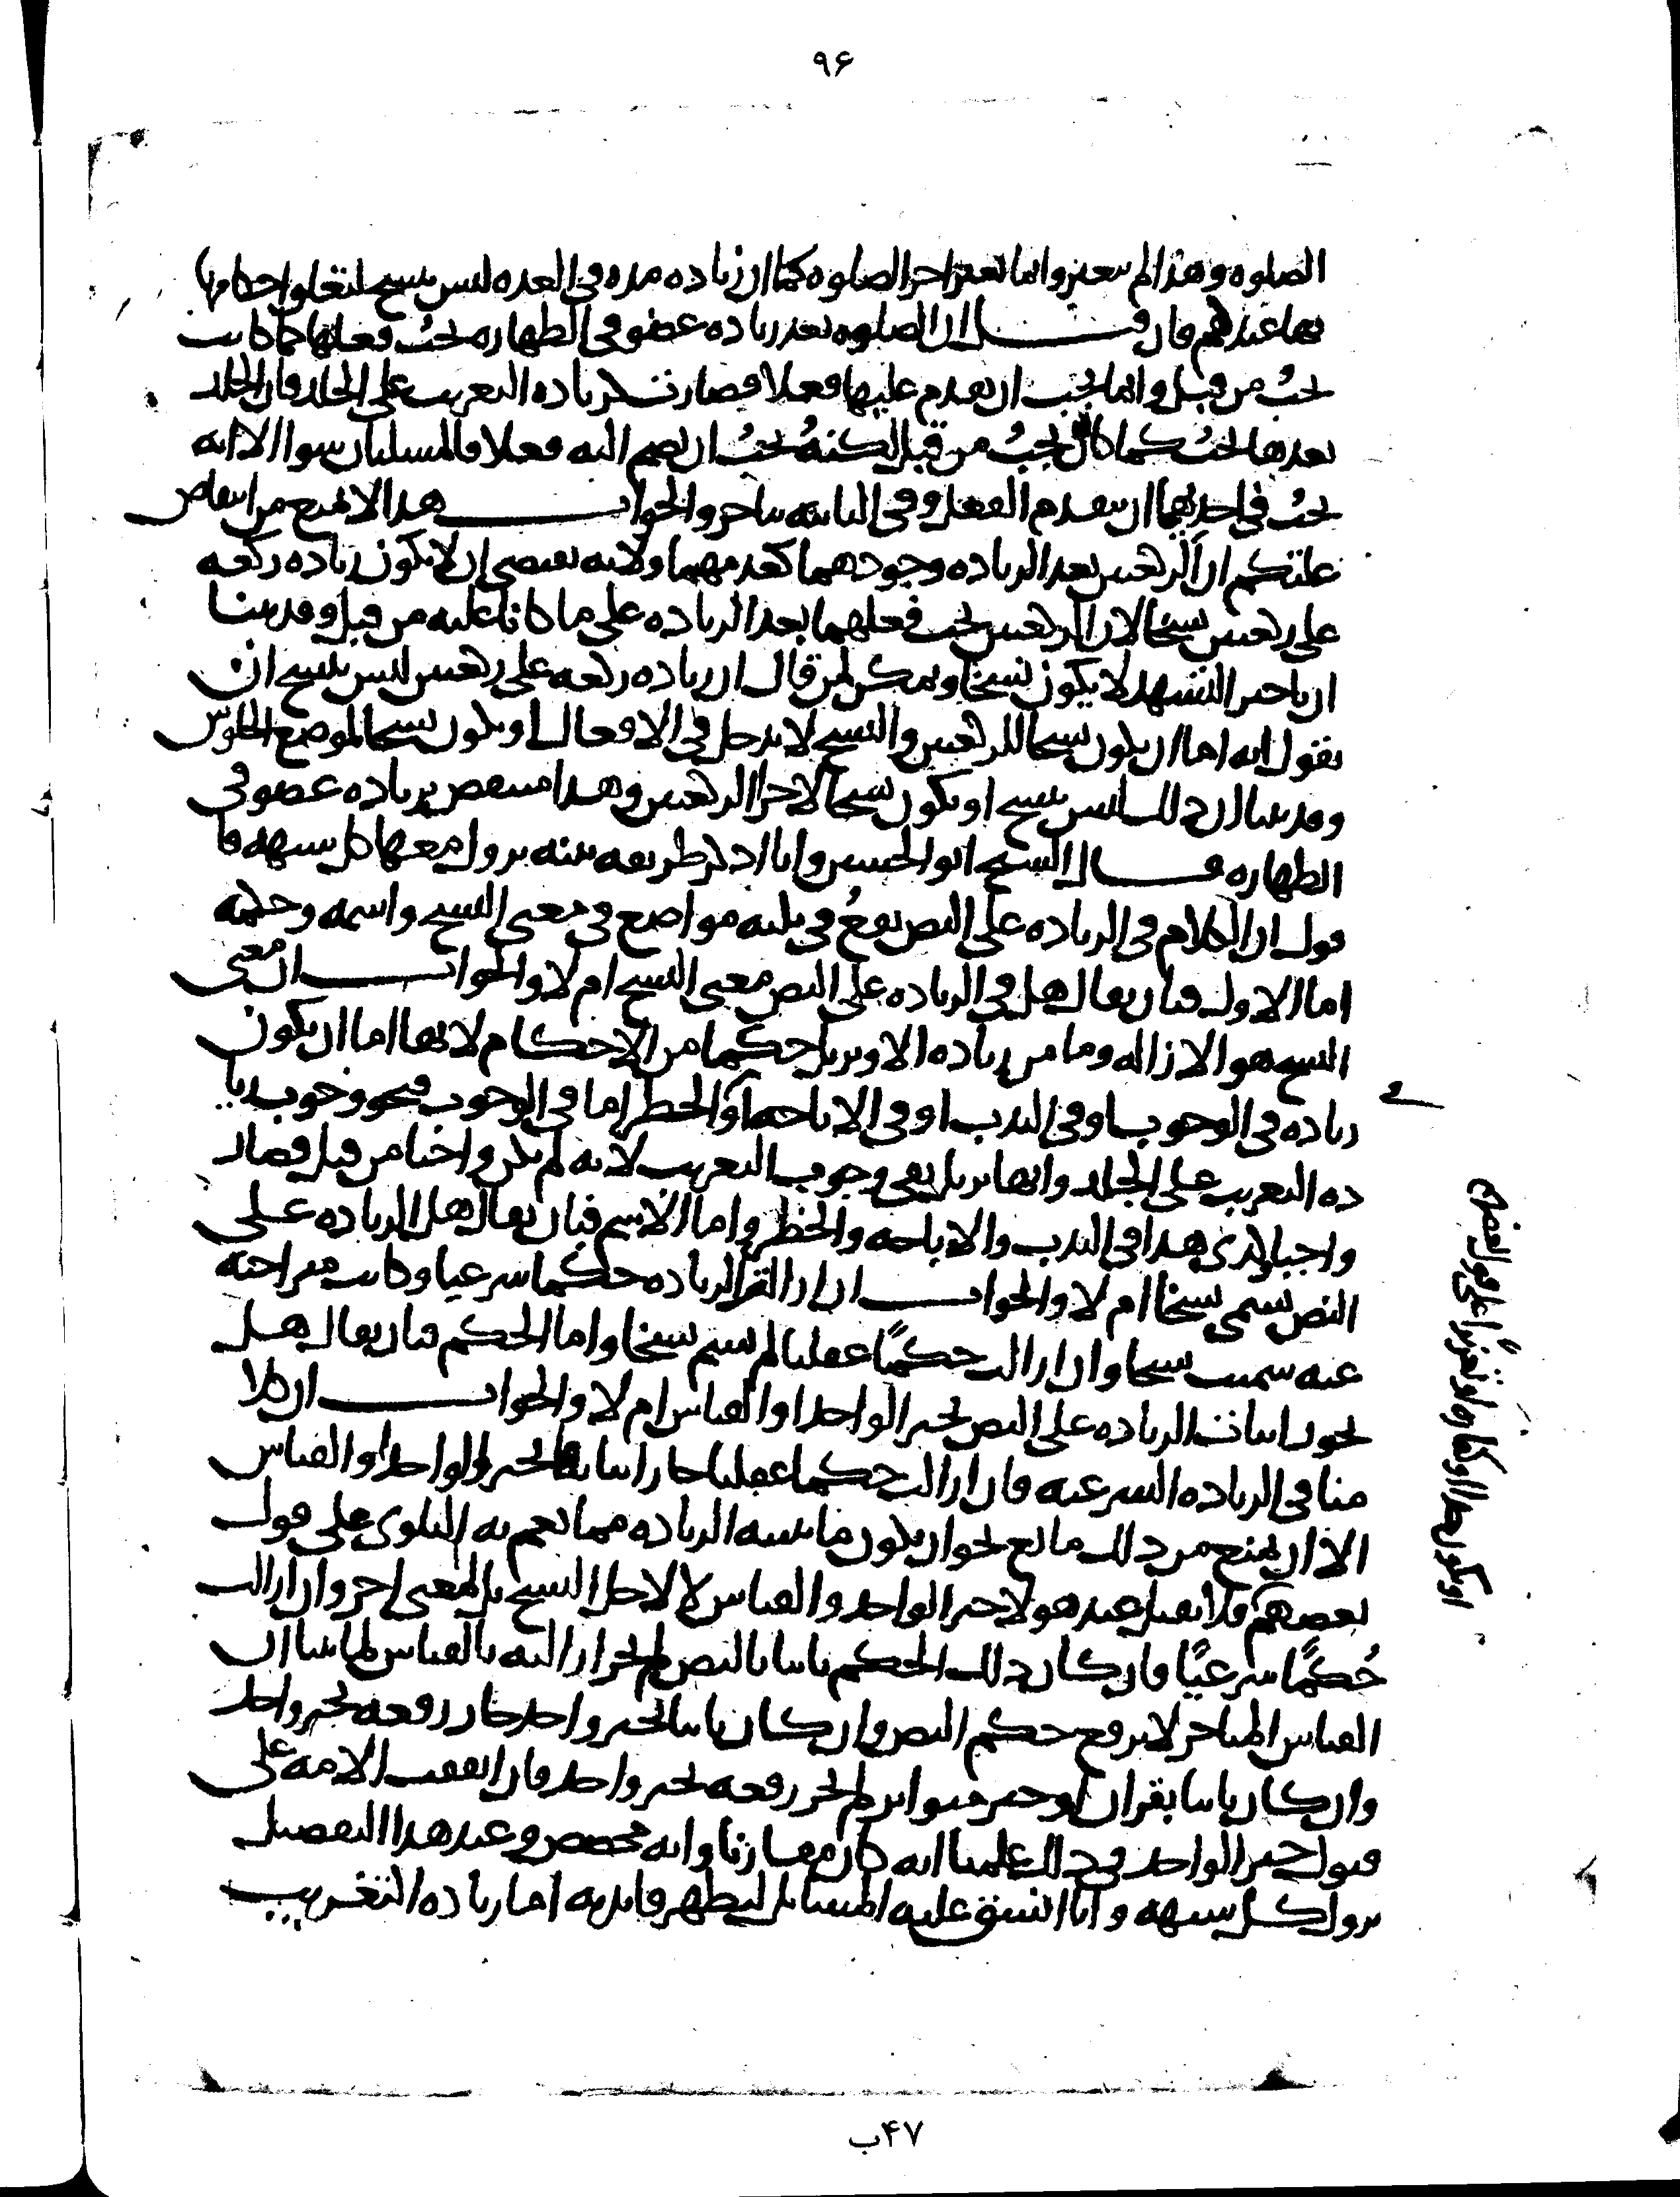 ٩۶
الصلوه وهذا لم يتغير وانما تغير اجزا الصلوه كما ان زياده مده في العده ليس بنسخ لتعلق احكامها
بها عندهم فان قال ان الصلوه بعد زياده عضو في الطهاره يجب فعلها كما كانت
يجبُ من قبل وانما يجب ان يقدم عليها فعلا فصارت كزياده التغريب على الحد فان الجلد
بعدها يجبُ كما كان يجبُ من قبل لكنهُ يجبُ ان يضم اليه فعلا فالمسلتان سوا الا انه
يجبُ في احديهما ان يتقدم الفعل وفي الثانيه يتاخر والجواب هذا لا يمنع من انتقاض
علتكم ان الركعتين بعد الزياده وجودهما كعدمهما ولانه يقتضي ان لا يكون زياده ركعه
على ركعتين نسخا لان الركعتين يجب فعلهما بعد الزياده على ما كانا عليه من قبل وقد بينا
ان تاخير التشهد لا يكون نسخا ويمكن لمن قال ان زياده ركعه على ركعتين ليس بنسخ ان
يقول انه اما ان يكون نسخا للركعتين والنسخ لا يدخل في الافعال او يكون نسخا لموضع الجلوس
وقد بينا ان ذلك ليس بنسخ او يكون نسخا لاجزا الركعتين وهذا منتقض بزياده عضو في
الطهاره قال الشيخ ابو الحسين وانا اذكر طريقه بينه يزول معها كل شبهه فا
قول ان الكلام في الزياده على النص يقعُ في ثلثه مواضع في معنى النسخ واسمه وحكمه
اما الاول فبان يقال هل في الزياده على النص معنى النسخ ام لا والجواب ان معنى
النسخ هو الازاله وما من زياده الا وتزيل حكما من الاحكام لانها اما ان يكون
زياده في الوجوب او في الندب او في الاباحه او الحظر اما في الوجوب فنحو وجوب زيا
ده التغريب على الجلد وانها تزيل نفي وجوب التغريب لانه لم يكن واجبا من قبل فصار
واجبا وكذى هذا في الندب والاباحه والحظر واما الاسم فبان يقال هل الزياده على
النص يسمى نسخا ام لا والجواب ان ازالت الزياده حكما شرعيا وكانت متراخيه
عنه سميت نسخا وان ازالت حكمًا عقليا لم يسم نسخا واما الحكم فبان يقال هل
يجوز اثبات الزياده على النص بخبر الواحد او القياس ام لا والجواب ان كلا
منا في الزياده الشرعيه فان ازالت حكما عقليا جاز اثباتها بخبر الواحد او القياس
الا ان يمنع من ذلك مانع نحو ان يكون ما تثبته الزياده مما تعم به البلوى على قول
بعضهم فلا يقبل عند هولا خبر الواحد والقياس لا لاجل النسخ بل لمعنى اخر وان ازالت
حُكمًا شرعيًا فان كان ذلك الحكم ثابتا بالنص لم يجز ازالته بالقياس لما بينا ان
القياس المتاخر لا يرفع حكم النص وان كان ثابتا بخبر واحد جاز رفعه بخبر واحد
وان كان ثابتا بقران او خبر متواتر لم يجز رفعه بخبر واحد فان اتفقت الامه على
قبول خبر الواحد في ذلك علمنا انه كان مقارنا وانه مخصص وعند هذا التفصيل
يزول كل شبهه وانا انسق عليه المسائل ليظهر فايدته اما زياده التغريب
۴۷ب